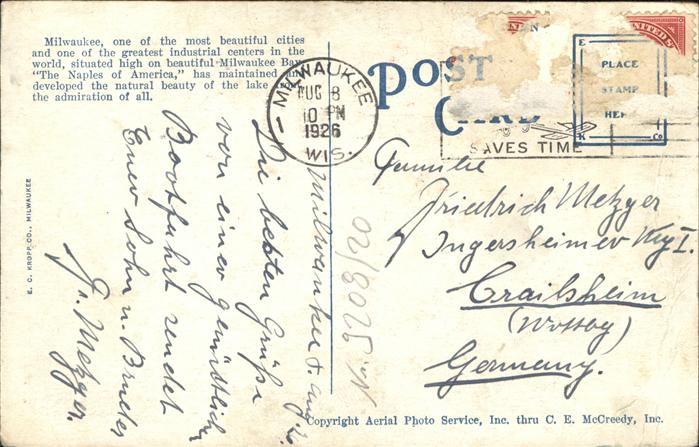 Milwaukee, one of the most beautiful cities
and one of the greatest industrial centers in the
world, situated high on beautiful Milwaukee Bay,
"The Naples of America," has maintained
developed the natural beauty of the lake
the admiration of all.
POST
CARD
MILWAUKEE
AUG 8
10 PM
1926
WIS.
UNITED S
E
PLACE
STAMP
HERE
K Co
SAVES TIME
E. C. KROPP CO., MILWAUKEE
Milwaukee 8. Aug. 26.
Die besten Grüße
von einer gemütlichen
Bootfahrt sendet
Euer Sohn u. Bruder
Fr. Metzger.
Familie
Friedrich Metzger
Ingersheimer
Crailsheim
Germany.
Copyright Aerial Photo Service, Inc. thru C. E. McCreedy, Inc.